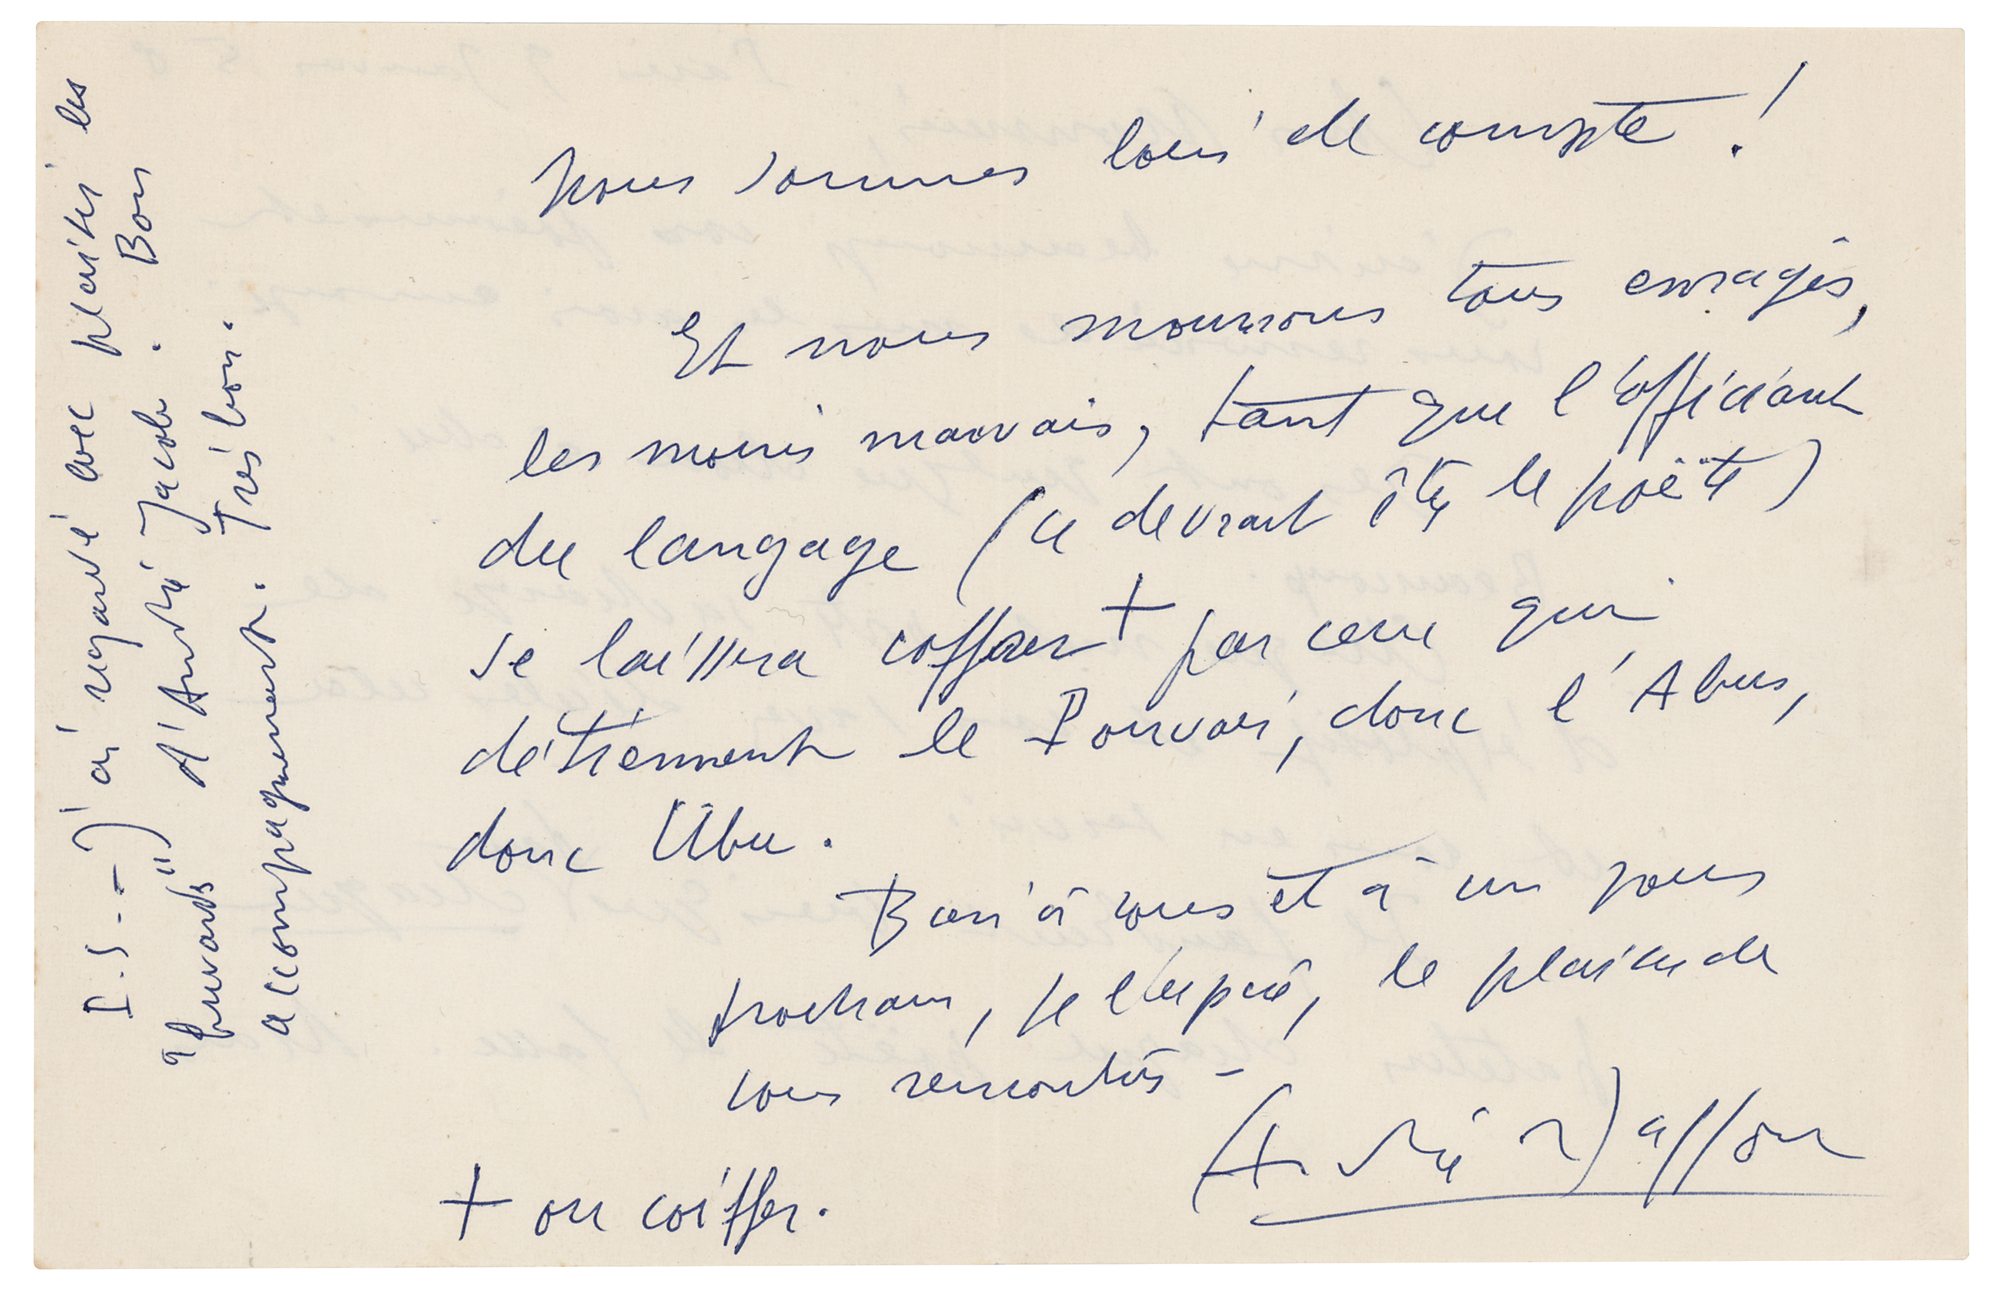 Nous sommes loin de compte !
Et nous mourrons tous enragés,
les moins mauvais, tant que l'officiant
du langage (ce devrait être le poëte)
se laissera coffrer + par ceux qui
détiennent le Pouvoir, donc l'Abus,
donc Ubu.
Bien à vous et à un jour
prochain, je l'espère, le plaisir de
vous rencontrer –
(André R) affon
+ ou coiffer.
P.S. – J'ai regardé avec plaisir les
"fuvards" d'André Jacob. Bon
accompagnement. Très bon.